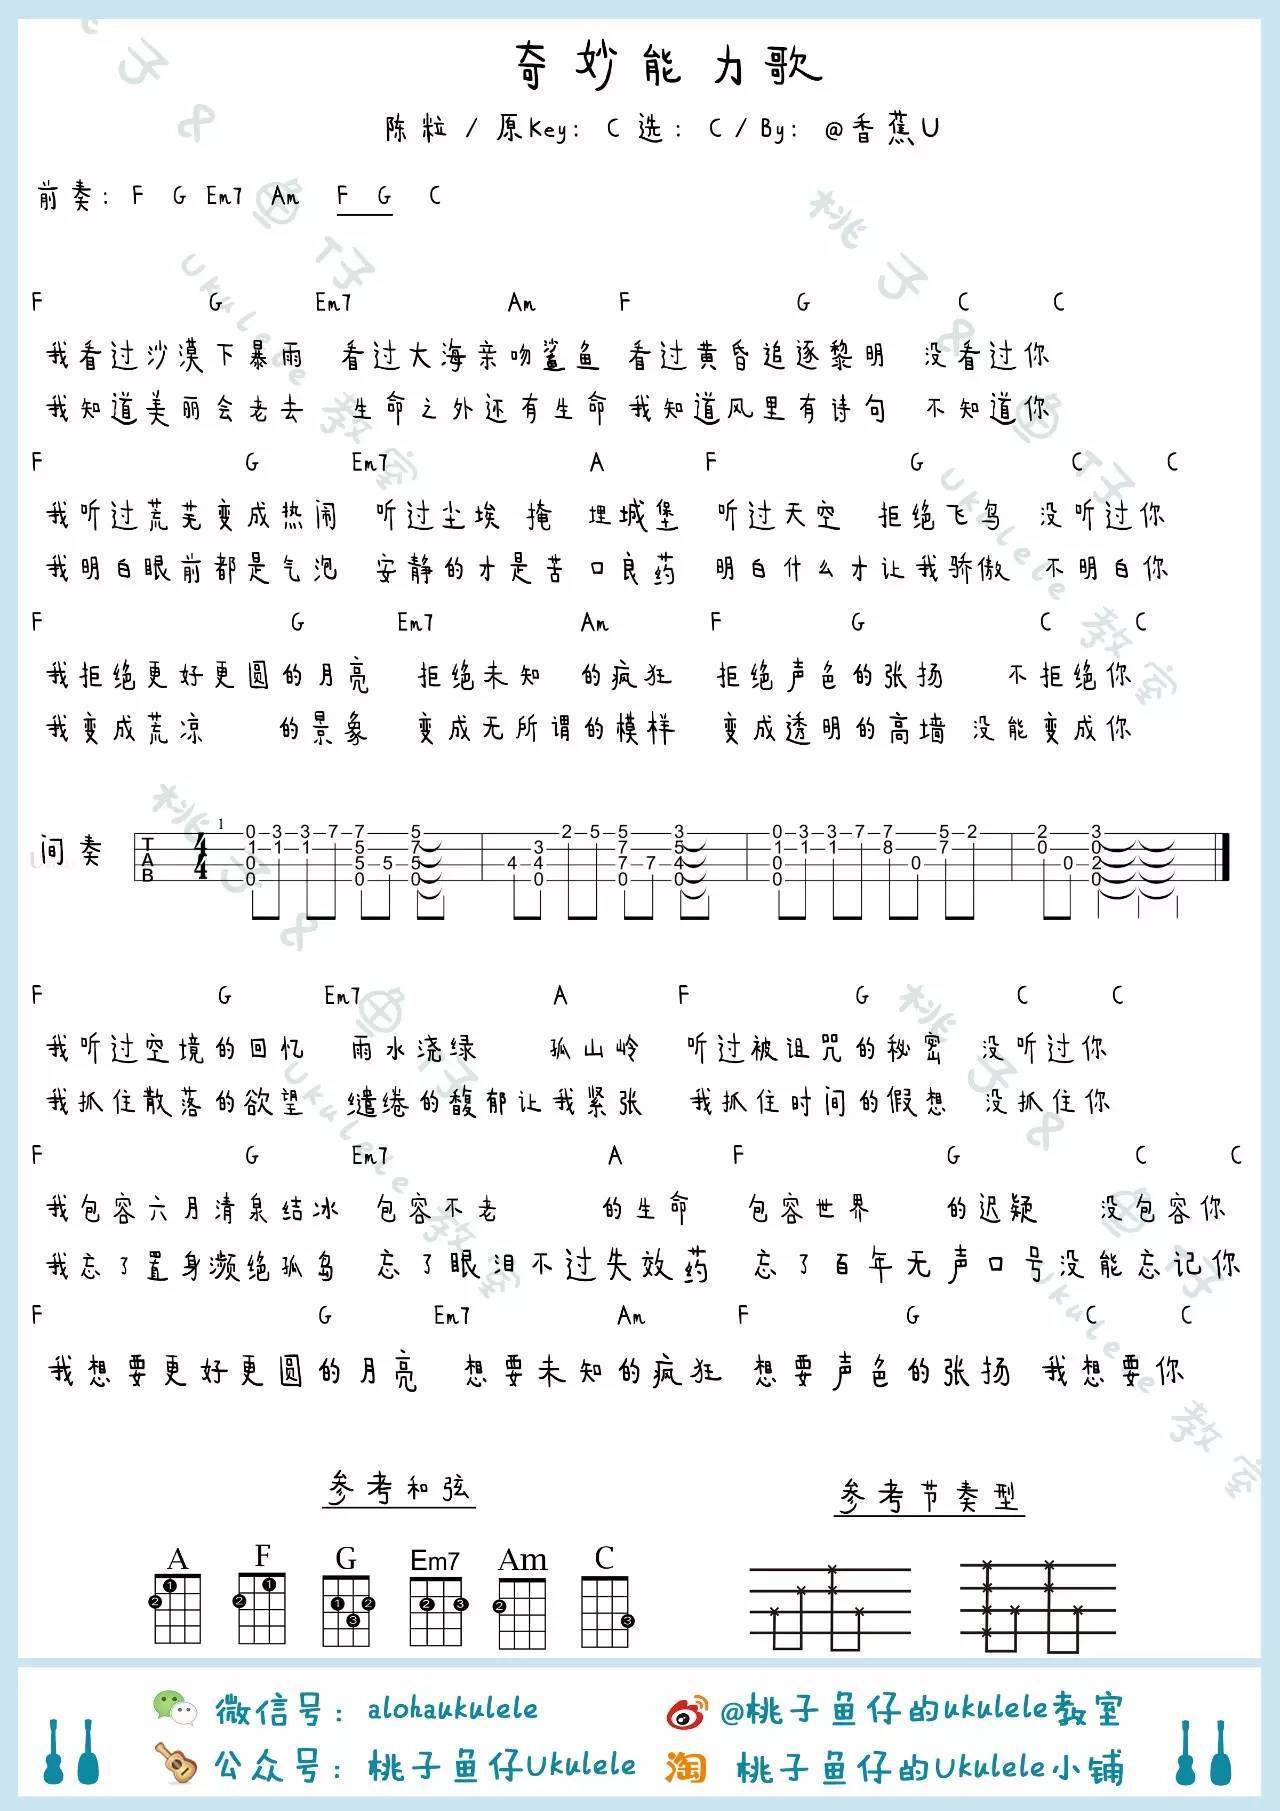 奇妙能力歌
陈粒 / 原Key: C 选: C / By: @香蕉U
前奏: F G Em7 Am F G C
F G Em7 Am F G C C
我看过沙漠下暴雨 看过大海亲吻鲨鱼 看过黄昏追逐黎明 没看过你
我知道美丽会老去 生命之外还有生命 我知道风里有诗句 不知道你
F G Em7 A F G C C
我听过荒芜变成热闹 听过尘埃 掩 埋城堡 听过天空 拒绝飞鸟 没听过你
我明白眼前都是气泡 安静的才是苦口良药 明白什么才让我骄傲 不明白你
F G Em7 Am F G C C
我拒绝更好更圆的月亮 拒绝未知 的疯狂 拒绝声色的张扬 不拒绝你
我变成荒凉 的景象 变成无所谓的模样 变成透明的高墙 没能变成你
间奏
F G Em7 A F G C C
我听过空境的回忆 雨水浇绿 孤山岭 听过被诅咒的秘密 没听过你
我抓住散落的欲望 缱绻的馥郁让我紧张 我抓住时间的假想 没抓住你
F G Em7 A F G C C
我包容六月清泉结冰 包容不老 的生命 包容世界 的迟疑 没包容你
我忘了置身濒绝孤岛 忘了眼泪不过失效药 忘了百年无声口号没能忘记你
F G Em7 Am F G C C
我想要更好更圆的月亮 想要未知的疯狂 想要声色的张扬 我想要你
参考和弦 参考节奏型
A F G Em7 Am C
微信号: alohaukulele @桃子鱼仔的ukulele教室
公众号: 桃子鱼仔Ukulele 淘 桃子鱼仔的Ukulele小铺